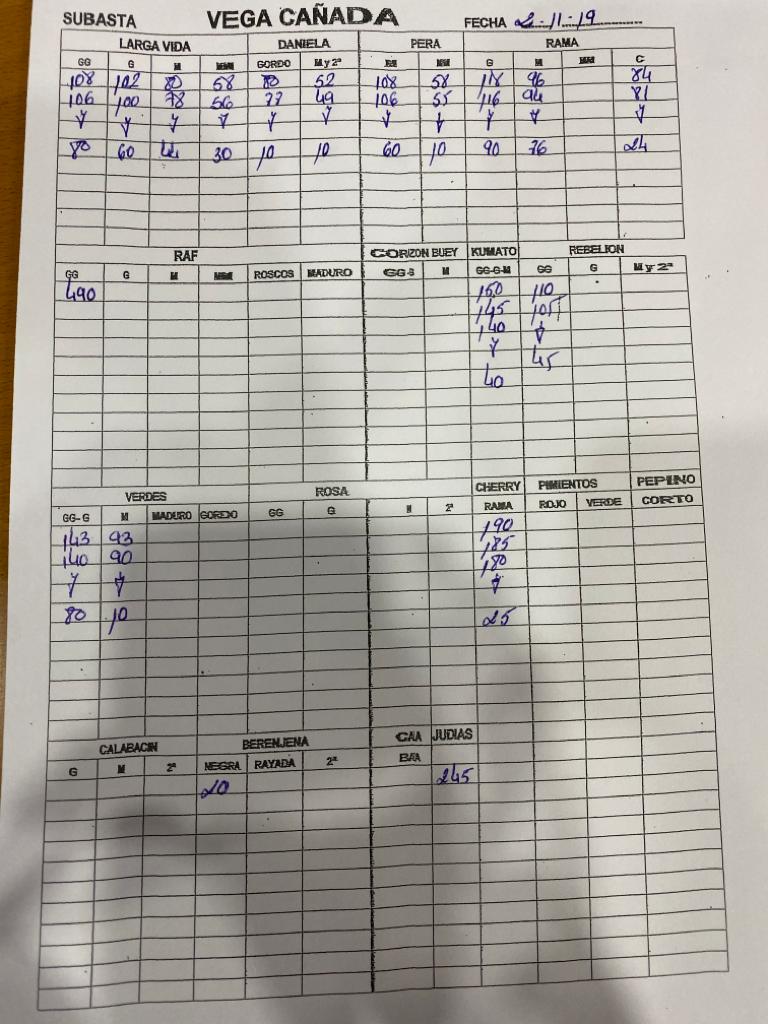 SUBASTA VEGA CAÑADA FECHA 2-11-19
LARGA VIDA DANIELA PERA RAMA
GG G M MM GORDO M y 2ª M MM G M MM C
108 102 80 58 80 52 108 58 118 96 84
106 100 78 56 77 49 106 55 116 94 81
80 60 44 30 10 10 60 10 90 76 24
RAF CORIZON BUEY KUMATO REBELION
GG G M MM ROSCOS MADURO GG-G M GG-G-M GG G M y 2ª
490 150 110
145 105
140
45
40
VERDES ROSA CHERRY PIMIENTOS PEPINO
GG-G M MADURO GORDO GG G M 2ª RAMA ROJO VERDE CORTO
143 93 190
140 90 185
180
80 10 25
CALABACIN BERENJENA CAA JUDIAS
G M 2ª NEGRA RAYADA 2ª B/A
20 245